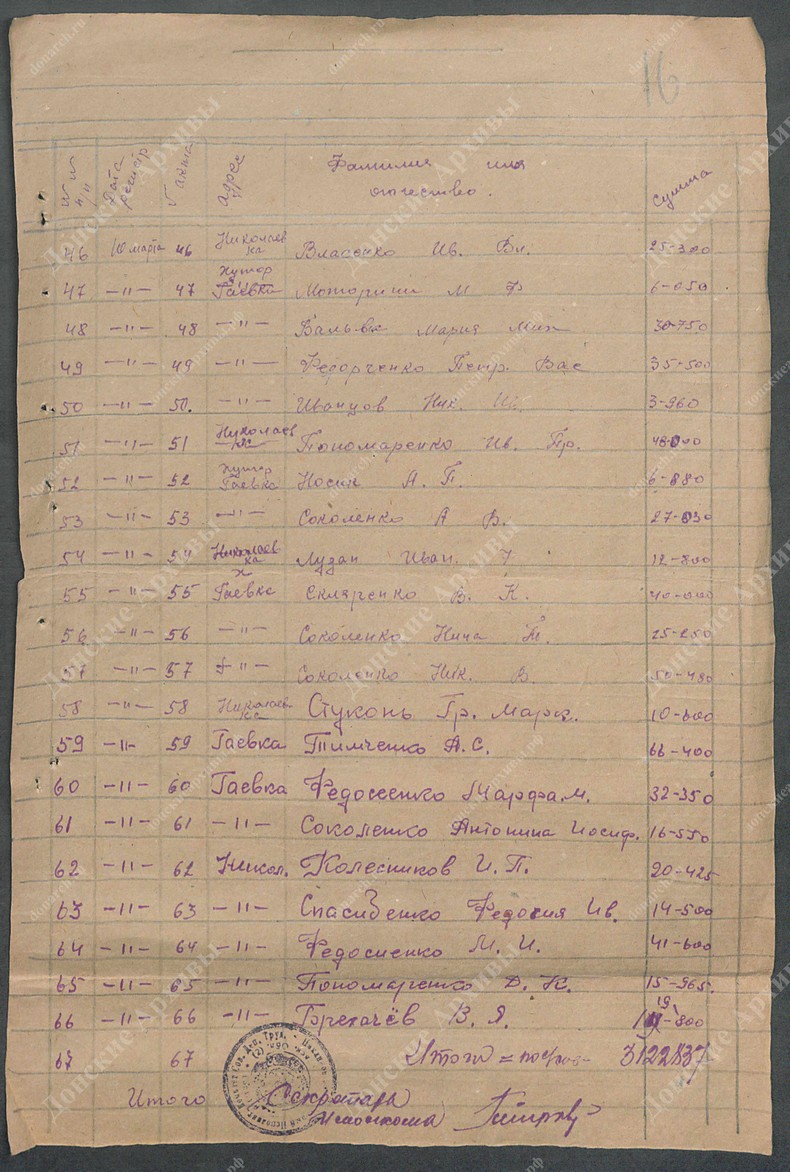 16
№ № п/п Дата регистр № акта адрес Фамилия имя отчество. сумма
46 10 марта 46 Николаевка Власенко Ив. Вл. 25-300
47 -"- 47 хутор Гаевка М Ф 6-050
48 -"- 48 -"- Мария Мих 30-750
49 -"- 49 -"- Федорченко Петр. Вас 35-500
50 -"- 50. -"- Иванцов Ник. 3-960
51 -"- 51 Николаевка Пономаренко Ив. Гр.
52 -"- 52 хутор Гаевка Носик А. П. 6-880
53 -"- 53 -"- Соколенко А В. 27-030
54 -"- 54 Николаевка Лудан Иван. 12-800
55 -"- 55 х Гаевка Скляренко В. К. 40-000
56 -"- 56 -"- Соколенко Нина 25-250
57 -"- 57 -"- Соколенко Ник. В. 50-480
58 -"- 58 Николаевка Стуконь Гр. Марк. 10-600
59 -"- 59 Гаевка Тимченко А. С. 66-400
60 -"- 60 Гаевка Федосенко Марфа М. 32-350
61 -"- 61 -"- Соколенко Антонина Иосиф. 16-550
62 -"- 62 Никол. Колесников И. П. 20-425
63 -"- 63 -"- Спасибенко Федосия Ив. 14-500
64 -"- 64 -"- Федосиенко М. И. 41-600
65 -"- 65 -"- Пономаренко Д. К. 15-965.
66 -"- 66 -"- В. Я. 19-800
67 67 Итого = 3122837
Итого Секретарь
Исполкома